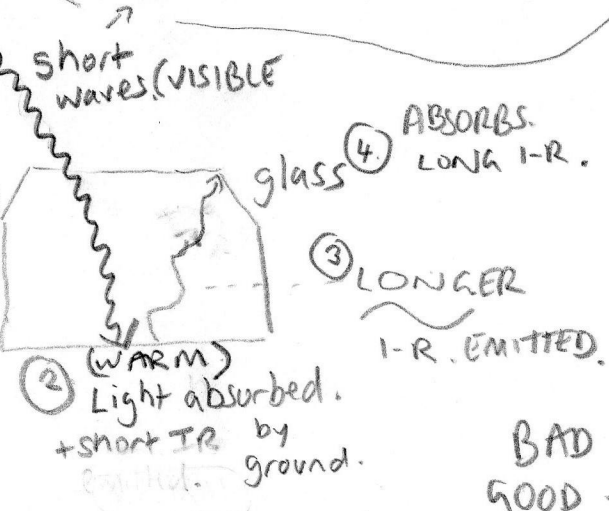 short
waves.(VISIBLE
glass
④ ABSORBS.
LONG I-R.
③ LONGER
I-R. EMITTED.
② (WARM)
Light absorbed.
+short IR by
ground.
BAD
GOOD